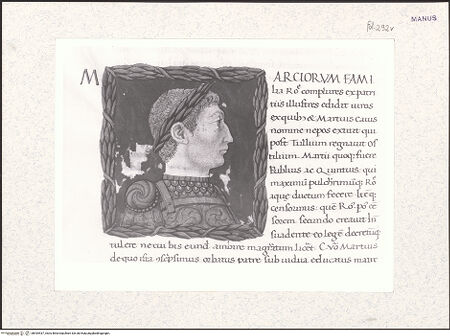 fol. 292v
MANUS
M ARCIORVM FAMI
lia Ro complures ex patri
tiis illustres edidit uiros
ex quib & Martius Caius
nomine nepos extitit qui
post Tullium regnauit Ho
stilium. Martii quoq fuere
Publius ac Quintus: qui
maximā pulcherrimāq Ro
aque ductum fecere
censorinus: quē Ro. po. cē
sorem secundo creauit In
suadente eo legē decretūq
tulere ne cui bis eund ambire magrātum licet. C. vo Martius
de quo ista cscpsimus orbatus patre sub uidua educatus matr